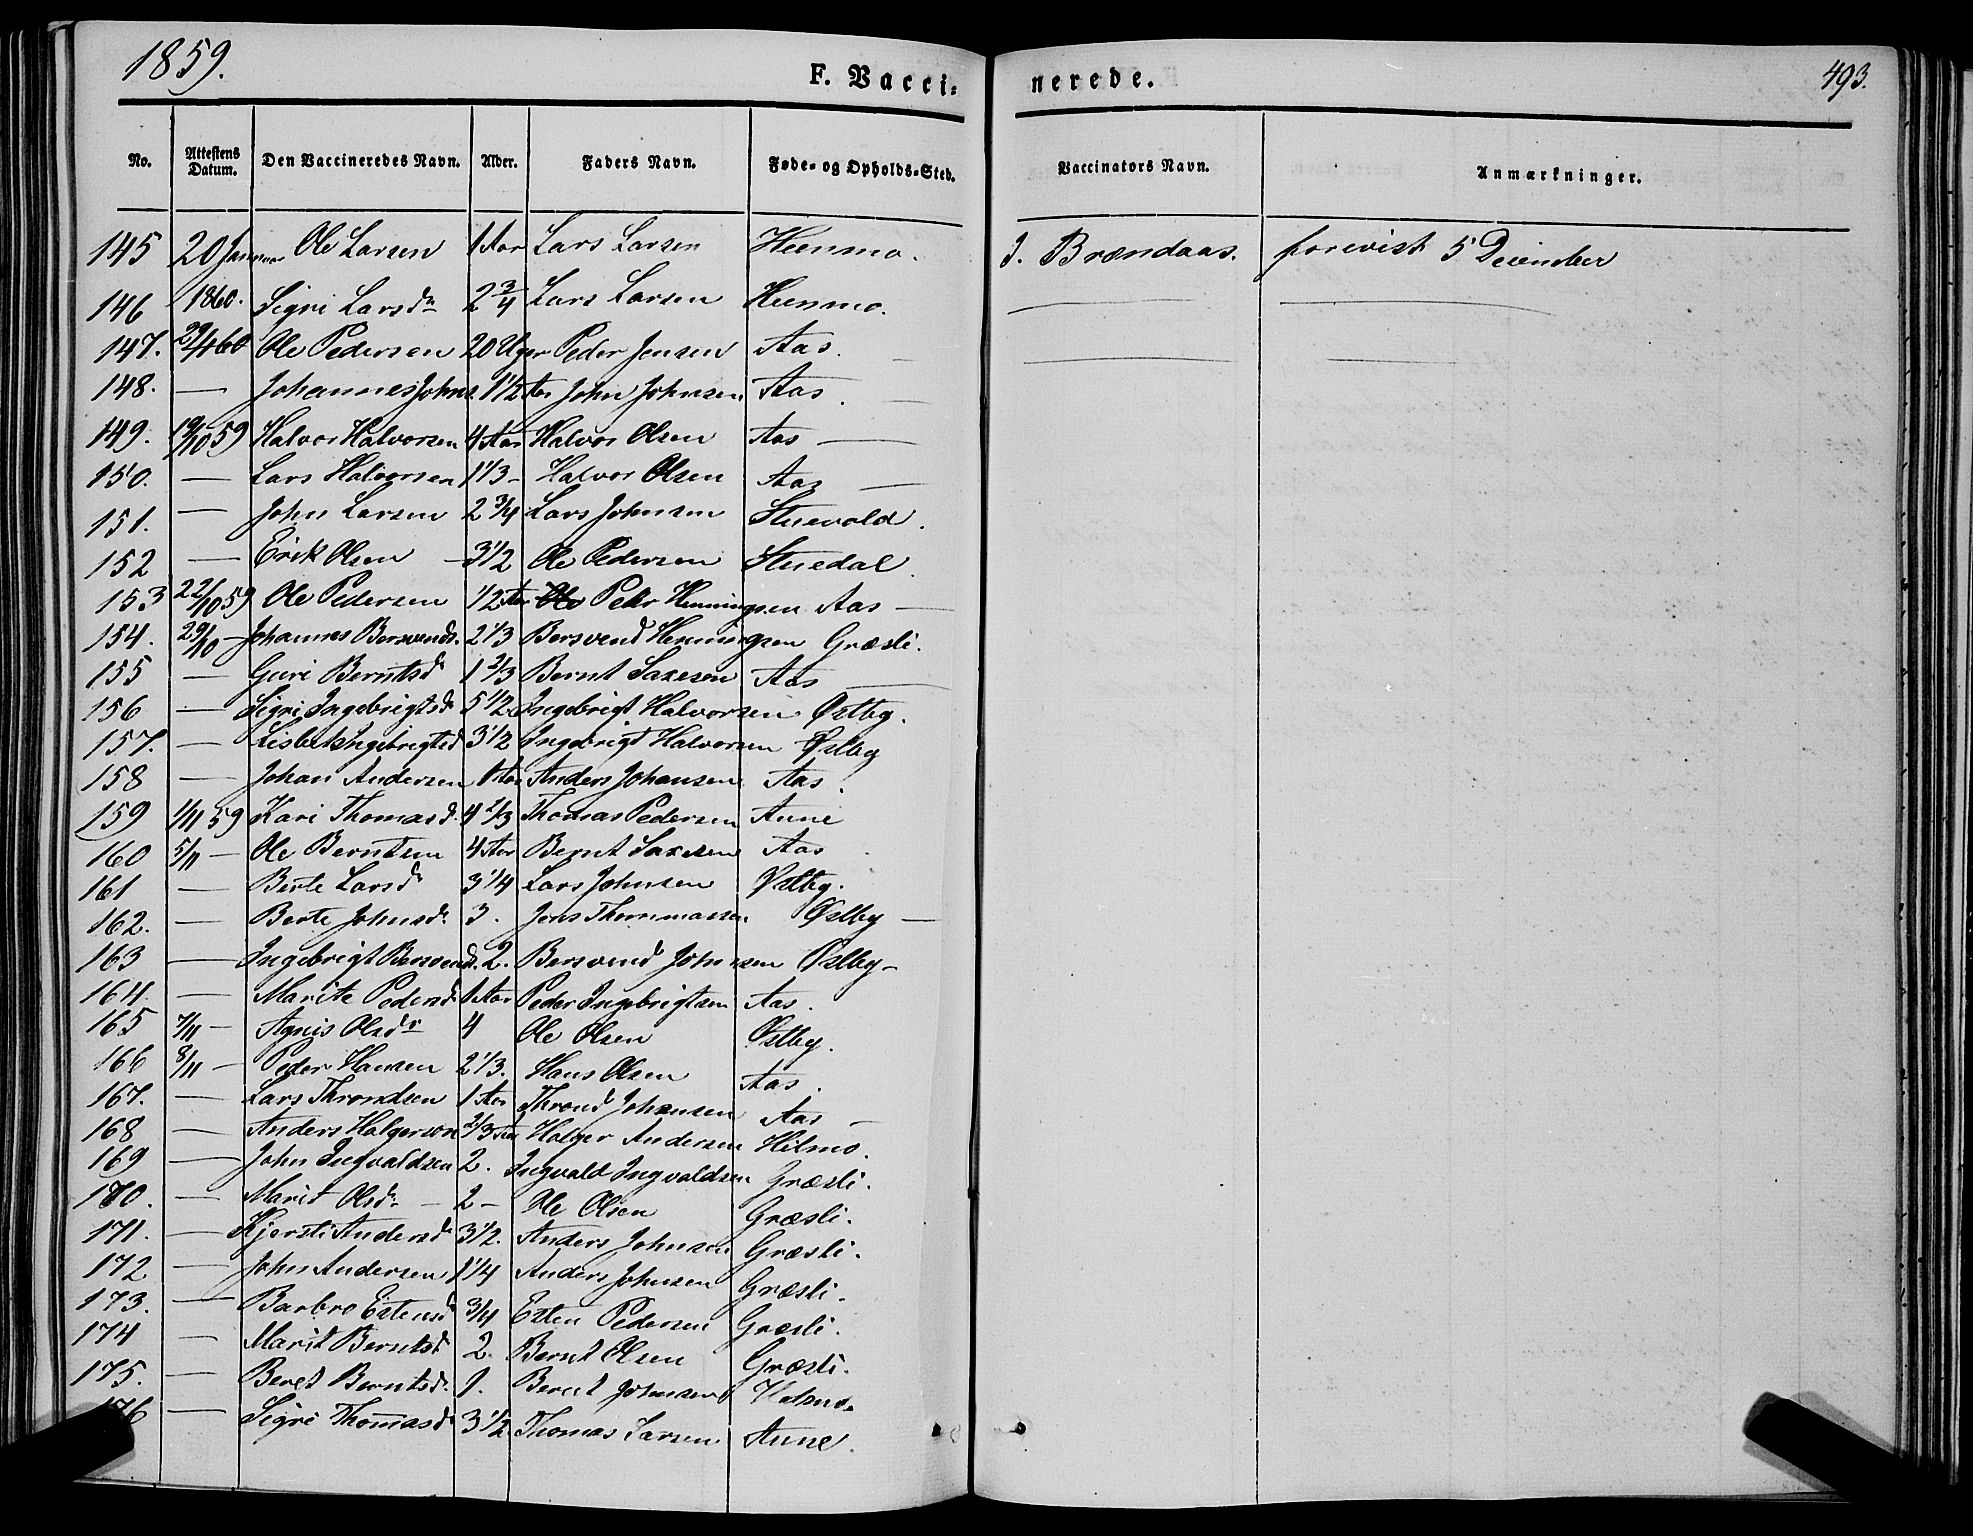 1859.
F. Vacci= nerede.
493.
No. Attestens Datum. Den Vaccineredes Navn. Alder. Faders Navn. Føde= og Opholds=Sted. Vaccinators Navn. Anmærkninger.
145 20 Januar Ole Larsen 1 Aar Lars Larsen Heenmo. J. Brændaas. forevist 5 December
146 1860. Sigri Larsdr 2 3/4 Lars Larsen Heenmo. — —
147. 29/1 60 Ole Pedersen 20 Uger Peder Jensen Aas. — — —
148. — Johannes Johns. 1 1/2 Aar John Johnsen Aas. —
149. 19/10 59 Halvor Halvorsen 4 Aar Halvor Olsen Aas —
150. — Lars Halvorsen 1 1/3 - Halvor Olsen Aas —
151. — John Larsen 2 3/4 Lars Johnsen Stuevold.
152 — Erik Olsen - 3 1/2 Ole Pedersen Stuedal.
153 22/10 59 Ole Pedersen 1/2 Aar Ole Peder Henningsen Aas —
154. 29/10 - Johannes Bersvends. 2 1/3 Bersvend Henningsen Græsli.
155 — Guri Berntsd 1 2/3 Bernt Saxesen Aas —
156 — Sigri Ingebrigtsd 5 1/2 Ingebrigt Halvorsen Østby.
157. — Lisbet Ingebrigtsd 3 1/2 Ingebrigt Halvorsen Østby
158 — Johan Andersen 1 Aar Anders Johansen Aas.
159 1/11 59 Kari Thomasd. 4 2/3 Thomas Pedersen Aune
160 5/11 — Ole Berntsen 4 Aar Bernt Saxesen Aas.
161 — Berte Larsdr 3 1/4 Lars Johnsen Østby.
162. — Berte Johnsdr 3. Jons Thommassen Østby —
163 — Ingebrigt Bersvends. 2. Bersvend Johnsen Østby -
164. — Marite Pedersd 1 Aar Peder Ingebrigtsen Aas.
165 7/11 — Agnis Olsdr 4 Ole Olsen Østby.
166 8/11 — Peder Hansen 2 1/3. Hans Olsen Aas.
167. — Lars Throndsen 1 Aar Thrond Johansen Aas —
168 — Anders Holgersen 2/3 Aar Holger Andersen Hilmo.
169 — John Ingvaldsen 2. Ingvald Ingvaldsen Græsli.
170. — Marit Olsdr — 2 - Ole Olsen Græsli.
171. — Kjersti Andersd 3 1/2. Anders Johnsen Græsli.
172 — John Andersen 1 1/4 Anders Johnsen Græsli.
173. — Barbro Estensd 3/4 Esten Pedersen Græsli.
174 — Marit Berntsd 2. Bernt Olsen Græsli.
175. — Beret Berntsd. 1. Bernt Johnsen
176 — Sigri Thomasd 3 1/2 Thomas Larsen Aune.